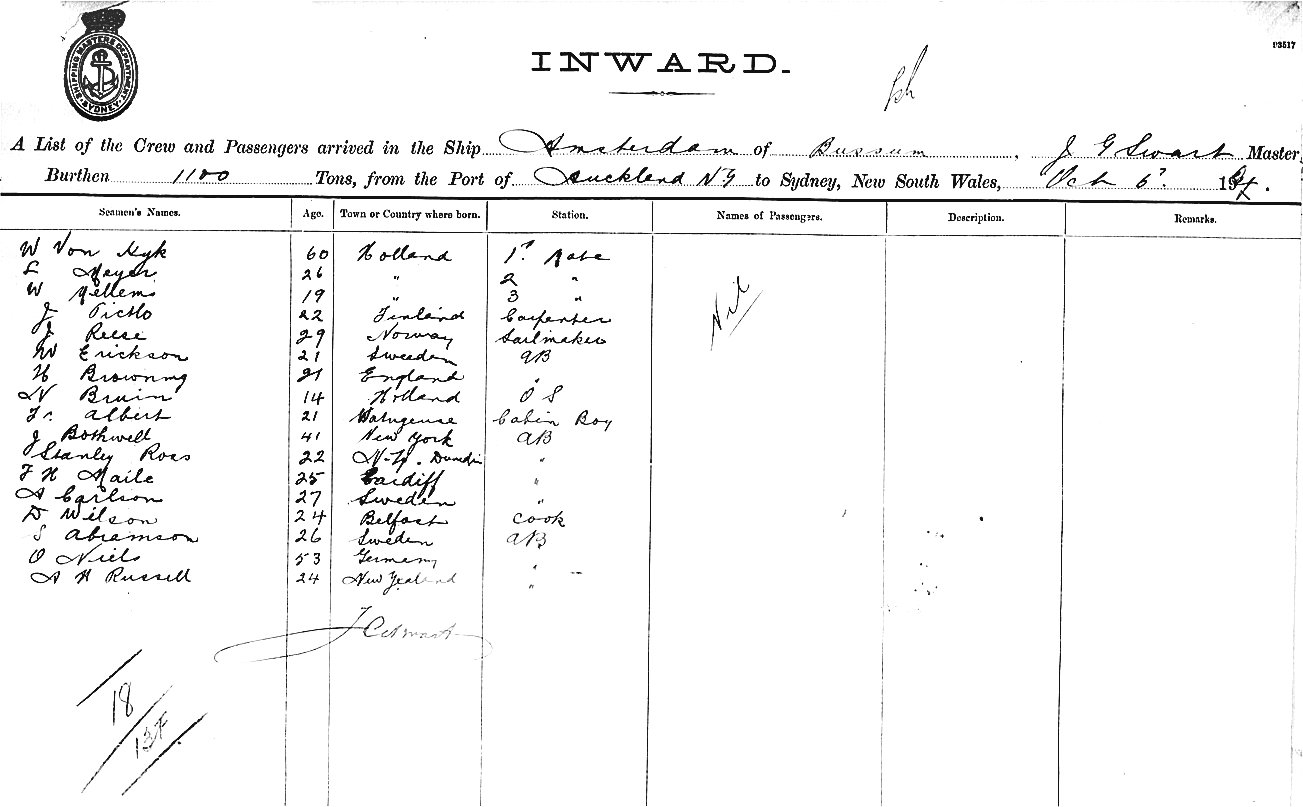 SHIPPING MASTERS DEPARTMENT
SYDNEY
P3517
INWARD.
A List of the Crew and Passengers arrived in the Ship Amsterdam of Bussum, J G Swart Master,
Burthen 1100 Tons, from the Port of Auckland N.Z to Sydney, New South Wales, Oct 6th. 19
Seamen's Names. Age. Town or Country where born. Station. Names of Passengers. Description. Remarks.
W Von Nyk 60 Holland 1st Mate Nil
L Meyer 26 " 2 "
W Willems 19 " 3 "
J 22 Finland Carpenter
J Reese 29 Norway Sailmaker
W Erickson 21 Sweeden AB
H Browning 21 England "
N Bruin 14 Holland O S
Fr. Albert 21 Cabin Boy
J Bothwell 41 New York AB
Stanley Ross 22 "
F H Maile 25 Cardiff "
A Carlson 27 Sweden "
D Wilson 24 Belfast Cook
S Abramson 26 Sweden AB
O Niels 53 Germany "
A H Russell 24 New Zealand "
18
13F